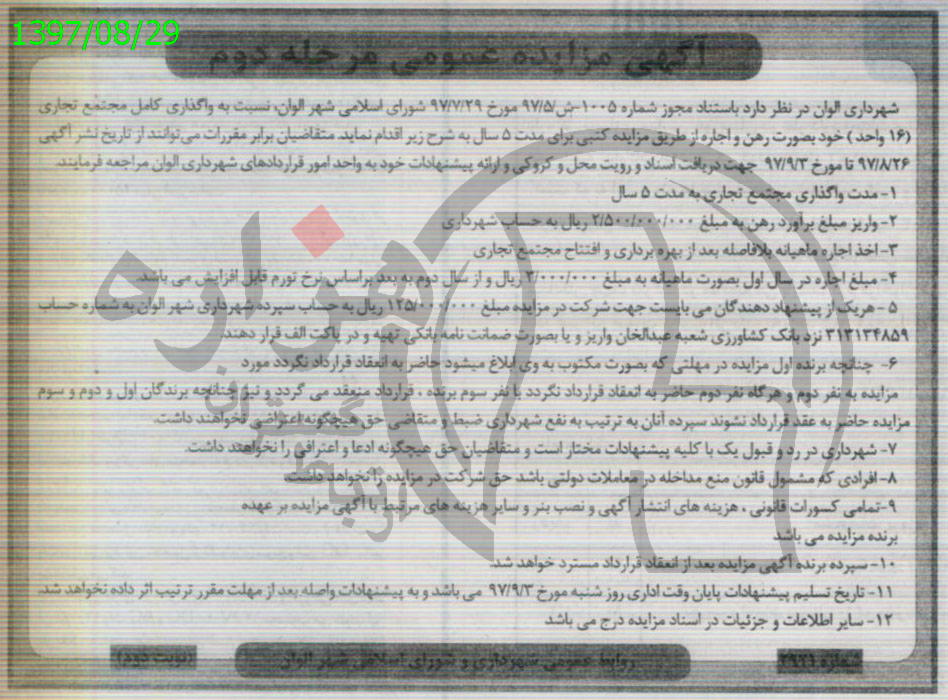 1397/08/29
آگهی مزایده عمومی مرحله دوم
شهرداری الوان در نظر دارد باستناد مجوز شماره ۱۰۰۵-ش/۹۷/۵ مورخ ۹۷/۷/۲۹ شورای اسلامی شهر الوان، نسبت به واگذاری کامل مجتمع تجاری
(۱۶ واحد) خود بصورت رهن و اجاره از طریق مزایده کتبی برای مدت ۵ سال به شرح زیر اقدام نماید. متقاضیان برابر مقررات می‌توانند از تاریخ نشر آگهی
۹۷/۸/۲۶ تا مورخ ۹۷/۹/۳ جهت دریافت اسناد و رویت محل و کروکی و ارائه پیشنهادات خود به واحد امور قراردادهای شهرداری الوان مراجعه فرمایند.
۱- مدت واگذاری مجتمع تجاری به مدت ۵ سال
۲- واریز مبلغ برآورد رهن به مبلغ ۲/۵۰۰/۰۰۰/۰۰۰ ریال به حساب شهرداری
۳- اخذ اجاره ماهیانه بلافاصله بعد از بهره برداری و افتتاح مجتمع تجاری
۴- مبلغ اجاره در سال اول بصورت ماهیانه به مبلغ ۳/۰۰۰/۰۰۰ ریال و از سال دوم به بعد براساس نرخ تورم قابل افزایش می باشد.
۵ - هریک از پیشنهاد دهندگان می بایست جهت شرکت در مزایده مبلغ ۱۲۵/۰۰۰/۰۰۰ ریال به حساب سپرده شهرداری شهر الوان به شماره حساب
۳۱۳۱۳۴۸۵۹ نزد بانک کشاورزی شعبه عبدالخان واریز و یا بصورت ضمانت نامه بانکی تهیه و در پاکت الف قرار دهند.
۶- چنانچه برنده اول مزایده در مهلتی که بصورت مکتوب به وی ابلاغ میشود حاضر به انعقاد قرارداد نگردد مورد
مزایده به نفر دوم و هر گاه نفر دوم حاضر به انعقاد قرارداد نگردد با نفر سوم برنده ، قرارداد منعقد می گردد و نیز چنانچه برندگان اول و دوم و سوم
مزایده حاضر به عقد قرارداد نشوند سپرده آنان به ترتیب به نفع شهرداری ضبط و متقاضی حق هیچگونه اعتراضی نخواهند داشت.
۷- شهرداری در رد و قبول یک یا کلیه پیشنهادات مختار است و متقاضیان حق هیچگونه ادعا و اعتراضی را نخواهند داشت.
۸- افرادی که مشمول قانون منع مداخله در معاملات دولتی باشد حق شرکت در مزایده را نخواهد داشت.
۹-تمامی کسورات قانونی ، هزینه های انتشار آگهی و نصب بنر و سایر هزینه های مرتبط با آگهی مزایده بر عهده
برنده مزایده می باشد
۱۰- سپرده برنده آگهی مزایده بعد از انعقاد قرارداد مسترد خواهد شد.
۱۱- تاریخ تسلیم پیشنهادات پایان وقت اداری روز شنبه مورخ ۹۷/۹/۳ می باشد و به پیشنهادات واصله بعد از مهلت مقرر ترتیب اثر داده نخواهد شد.
۱۲- سایر اطلاعات و جزئیات در اسناد مزایده درج می باشد
شماره ۲۹۲۱
روابط عمومی شهرداری و شورای اسلامی شهر الوان
(نوبت دوم)